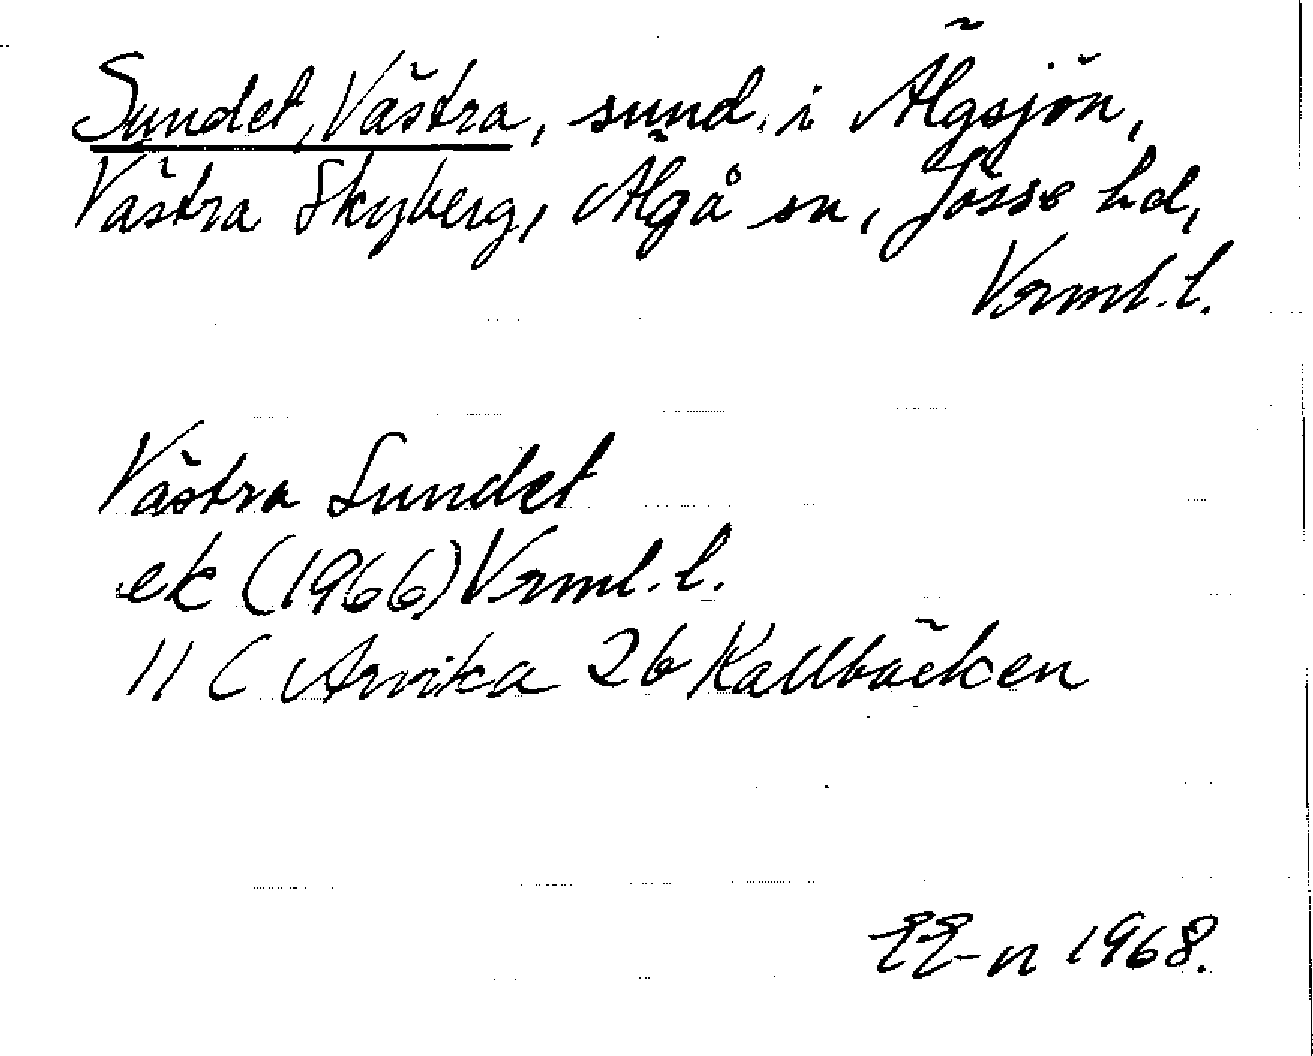 Sundet, Västra, sund i Älgsjön,
Västra Skyberg, Älgå sn, Jösse hd,
Vrml. l.
Västra Sundet
ek (1966) Vrml. l.
11 C Arvika 2b Kallbäcken
1968.